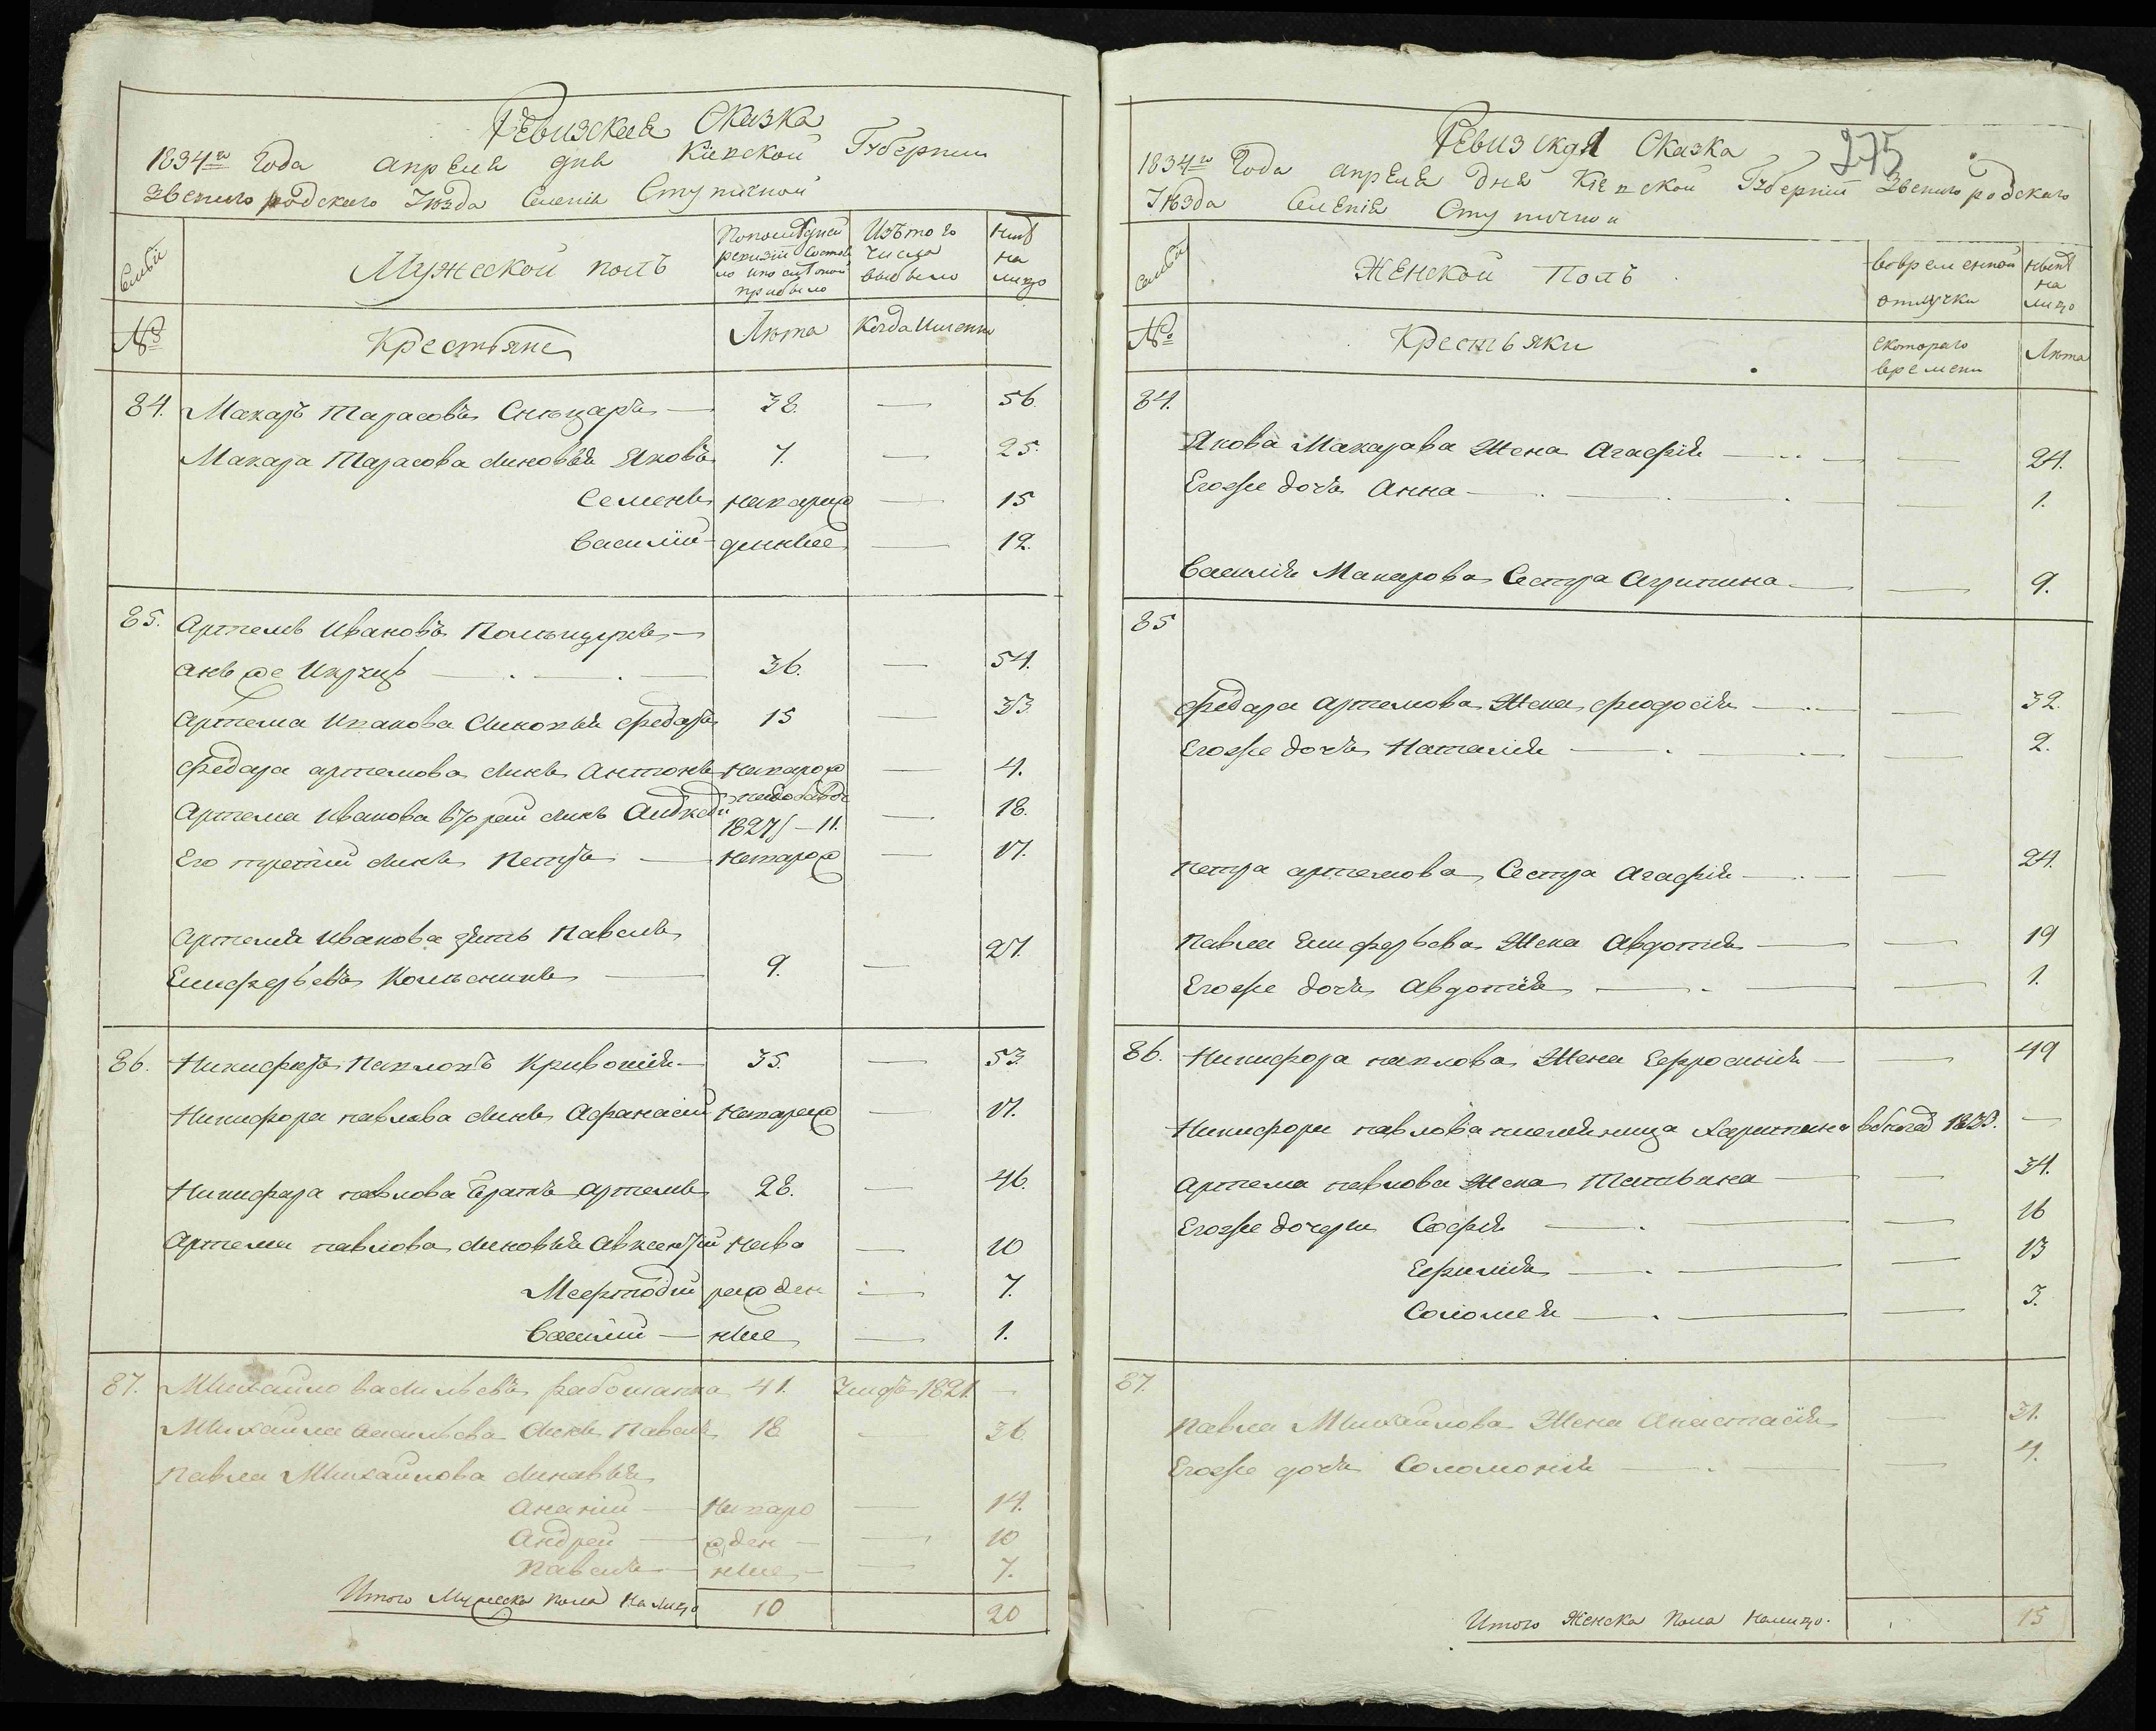 Ревизская Сказка
1834го Года апреля дня Киевской Губернии
Звенигородскаго Уезда Селения Ступичной
Семьи
Мужеской полъ
Попоследней ревизии состояло ипо оной прибыло
Изътого числа выбыло
Ныне на лицо
№
Крестьяне
Лета
Когда Именно
84. Макаръ Тарасовъ Сницарь — 38. — 56.
Макара Тарасова синовья Яковъ 7. — 25.
Семенъ новорож — 15
Василий денные — 12.
85. Артемъ Ивановъ
онъ же 36. — 54.
Артема Иванова синовья Федоръ 15 — 33.
Федора артемова синъ Антонъ новорож — 4.
Артема Иванова вторый синъ 1827 — 11. — 18.
Его третий синъ Петръ — новорож — 17.
Артема Иванова зять Павелъ
Елиферьевъ Колесникъ — 9. — 27.
86. Никифоръ Павловъ Кривошия — 35. — 53.
Никифора павлова синъ Афанасий новорож — 17.
Никифора павлова братъ артемъ 28. — 46.
Артема павлова синовья Авксентий ново — 10
Мефтодий рожден — 7.
Василий — ные — 1.
87. Михайло васильевъ 41. Умеръ 1821. —
Михайла васильева синъ Павелъ 18 — 36.
Павла Михайлова синовья
Ананий — Новоро — 14.
Андрей — жден — 10
Павелъ — ные — 7.
Итого Мужеска пола На лицо 10 20
275
Ревизская Сказка
1834го Года апреля дня Киевской Губернии Звенигородскаго
Уезда Селения Ступичной
Семьи
Женской Полъ
вовременной отлучки
Ныне на лицо
№
Крестьянки
скотораго времени
Лета
84.
Якова Макарова Жена Агафия — — 24.
Егоже дочь Анна — — 1.
Василия Макарова Сестра Агрипина — — 9.
85
Федора артемова Жена феодосия — — 32.
Егоже дочь Наталия — — 2.
Петра артемова Сестра Агафия — — 24.
Павла Елиферьева Жена Авдотия — — 19
Егоже дочь Авдотия — — 1.
86. Никифора павлова Жена Ефросиния — — 49
Никифора павлова племяница Харитина 1833. —
Артема павлова Жена Татьяна — — 34.
Егоже дочери София — — 16
Ефимия — — 13
Соломея — — 3.
87.
Павла Михайлова Жена Анастасия — 31.
Егоже дочь Соломония — — 4.
Итого Женска Пола Налицо. 15